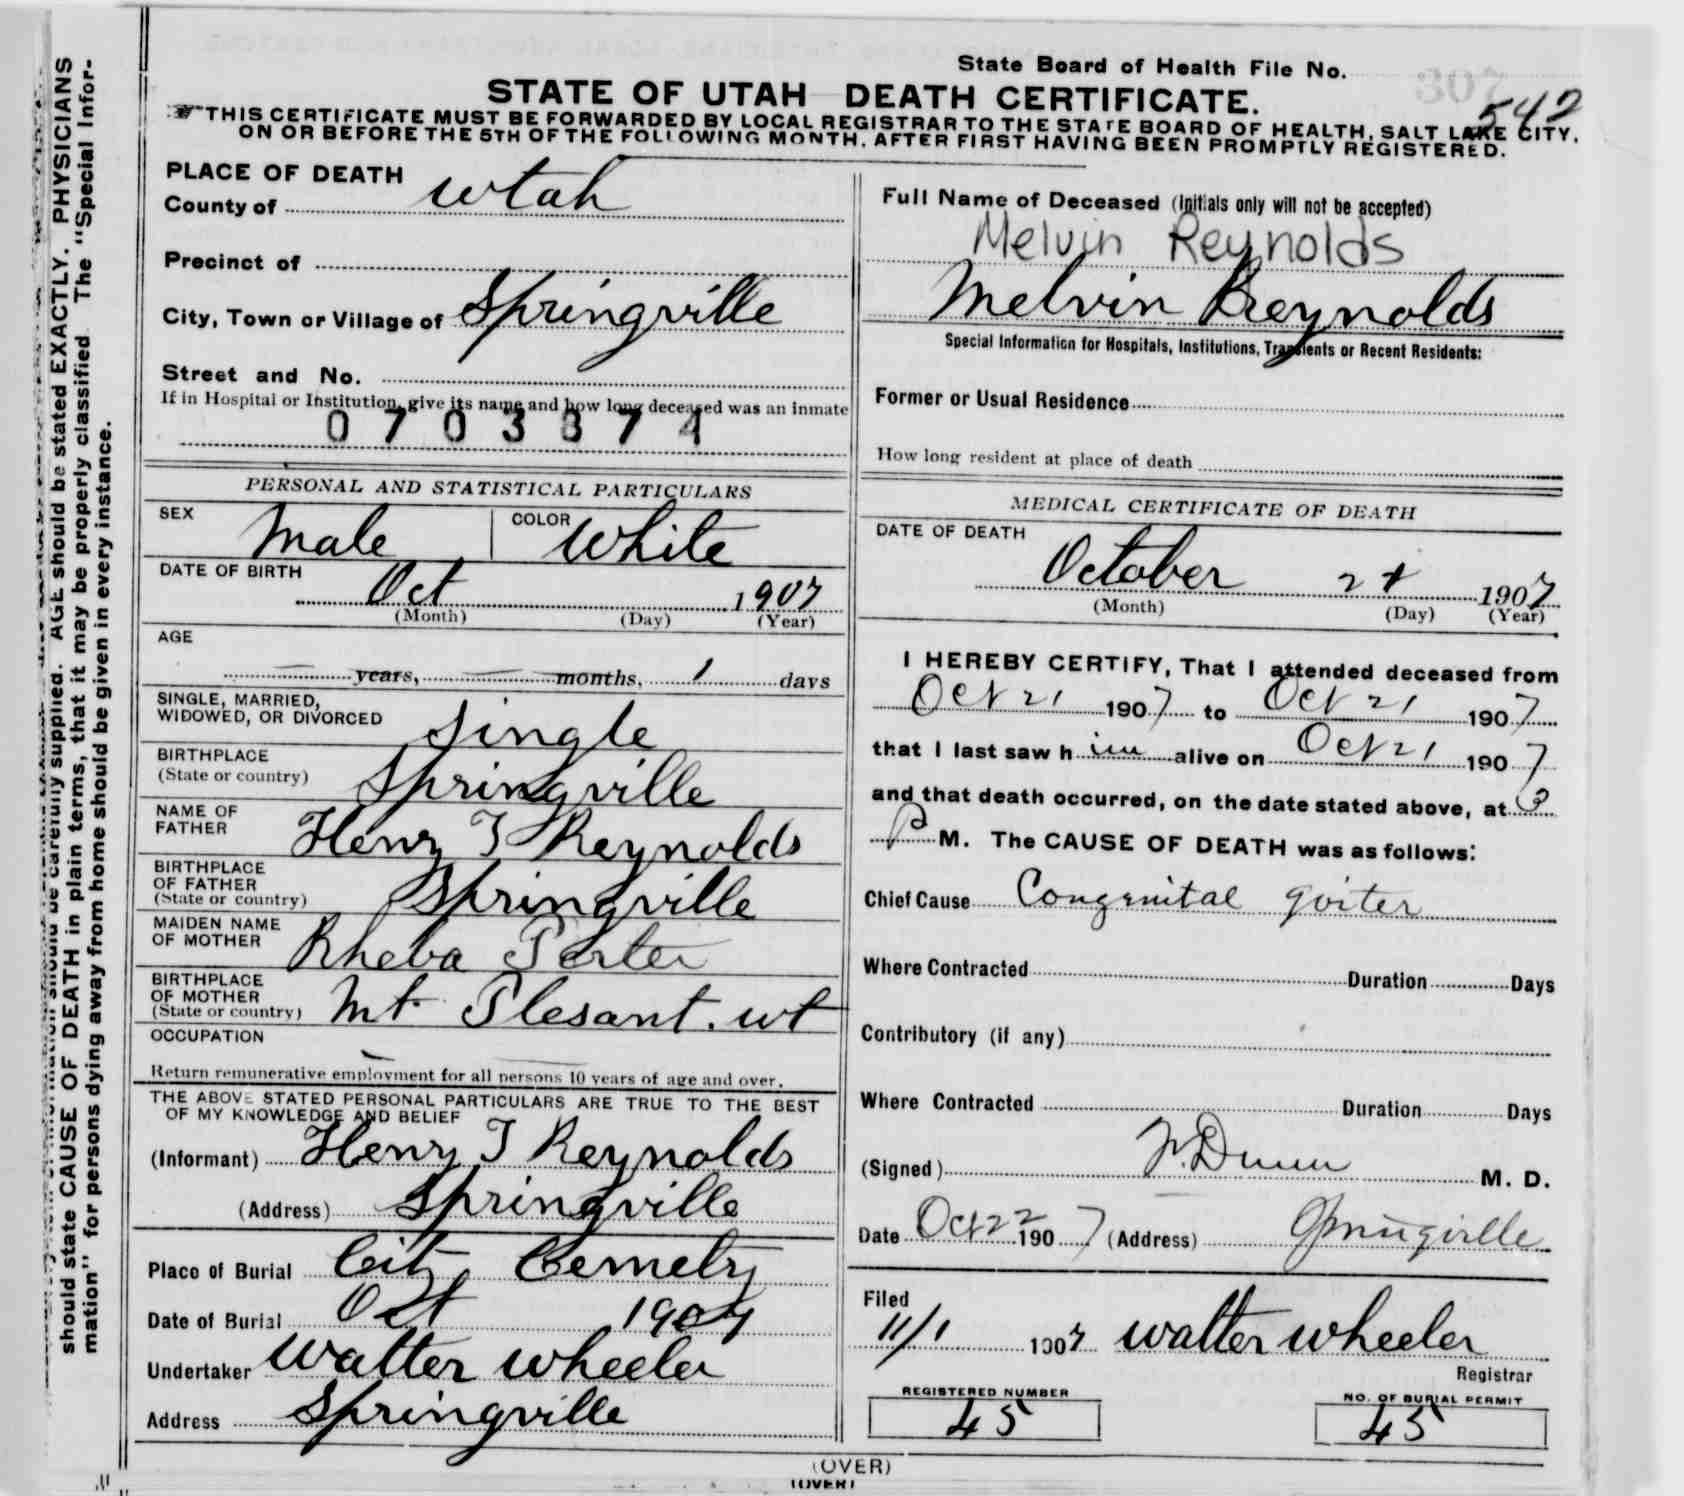 State Board of Health File No.
307
542
STATE OF UTAH DEATH CERTIFICATE.
THIS CERTIFICATE MUST BE FORWARDED BY LOCAL REGISTRAR TO THE STATE BOARD OF HEALTH, SALT LAKE CITY,
ON OR BEFORE THE 5TH OF THE FOLLOWING MONTH, AFTER FIRST HAVING BEEN PROMPTLY REGISTERED.
PLACE OF DEATH
County of Utah
Precinct of
City, Town or Village of Springville
Street and No.
If in Hospital or Institution, give its name and how long deceased was an inmate
0703874
PERSONAL AND STATISTICAL PARTICULARS
SEX Male COLOR White
DATE OF BIRTH
Oct 1907
(Month) (Day) (Year)
AGE
— years, — months, 1 days
SINGLE, MARRIED,
WIDOWED, OR DIVORCED Single
BIRTHPLACE
(State or country) Springville
NAME OF
FATHER Henry T Reynolds
BIRTHPLACE
OF FATHER
(State or country) Springville
MAIDEN NAME
OF MOTHER Rheba Porter
BIRTHPLACE
OF MOTHER
(State or country) Mt Plesant. ut
OCCUPATION
Return remunerative employment for all persons 10 years of age and over.
THE ABOVE STATED PERSONAL PARTICULARS ARE TRUE TO THE BEST
OF MY KNOWLEDGE AND BELIEF
(Informant) Henry T Reynolds
(Address) Springville
Place of Burial City Cemetry
Date of Burial Oct 1907
Undertaker Walter Wheeler
Address Springville
Full Name of Deceased (Initials only will not be accepted)
Melvin Reynolds
Melvin Reynolds
Special Information for Hospitals, Institutions, Transients or Recent Residents:
Former or Usual Residence
How long resident at place of death
MEDICAL CERTIFICATE OF DEATH
DATE OF DEATH
October 21 1907
(Month) (Day) (Year)
I HEREBY CERTIFY, That I attended deceased from
Oct 21 1907 to Oct 21 1907
that I last saw him alive on Oct 21 1907
and that death occurred, on the date stated above, at 3
P M. The CAUSE OF DEATH was as follows:
Chief Cause Congenital goiter
Where Contracted Duration Days
Contributory (if any)
Where Contracted Duration Days
(Signed) F. Dunn M. D.
Date Oct 22 1907 (Address) Springville
Filed
11/1 1907 Walter Wheeler
Registrar
REGISTERED NUMBER
45
NO. OF BURIAL PERMIT
45
(OVER)
(OVER)
AGE should be stated EXACTLY. PHYSICIANS
should state CAUSE OF DEATH in plain terms, that it may be properly classified. The "Special Infor-
mation" for persons dying away from home should be given in every instance.